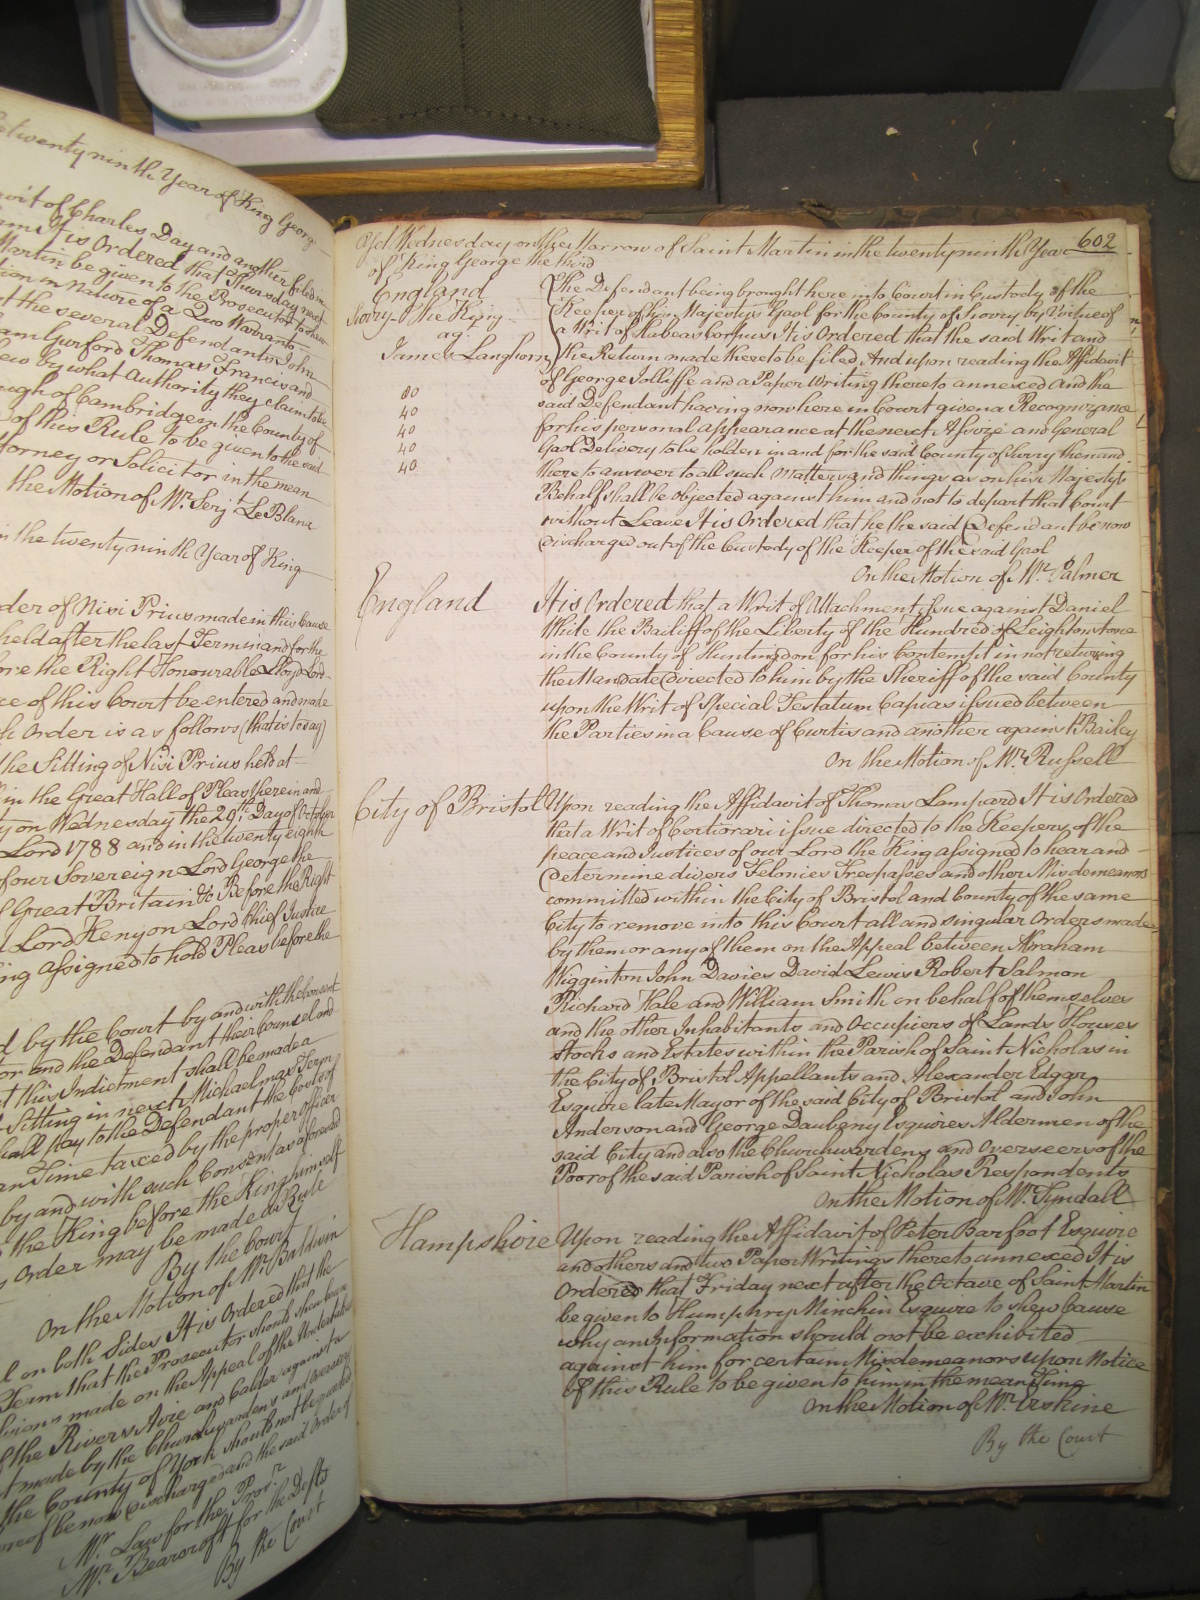 twenty ninth Year of King Georg
of Charles Day and another filed in
It is Ordered that Thursday next
Martin be given to the Prosecutor to shew
in nature of a Quo Warranto
the several Defendants John
Gurford Thomas Francis and
by what Authority they claim to be
of Cambridge in the County of
of this Rule to be given to the said
or Solicitor in the mean
the Motion of Mr. Serjt. Le Blanc
the twenty ninth Year of King
of Nisi Prius made in this Cause
held after the last Term in and for the
the Right Honourable Lloyd Lord
of this Court be entered and made
Order is as follows (that is to say)
the Sitting of Nisi Prius held at
in the Great Hall of Pleas therein and
on Wednesday the 29th Day of October
Lord 1788 and in the twenty eighth
of our Sovereign Lord George the
Great Britain &c Before the Right
Lord Kenyon Lord Chief Justice
assigned to hold Pleas before the
by the Court by and with the Consent
and the Defendant their Counsel and
this Indictment shall be made a
Sitting in next Michaelmas Term
shall pay to the Defendant the Costs of
Time taxed by the proper officer
by and with such Consent as aforesaid
the King before the King himself
Order may be made a Rule
By the Court
On the Motion of Mr. Baldwin
on both Sides It is Ordered that the
Term that the Prosecutor should shew
made on the Appeal of the Undertakers
the Rivers Aire and Calder against a
made by the Churchwardens and Overseers
the County of York should not be quashed
be now discharged and the said Order of
Mr. Law for the Pror.
Mr. Bearcroft for the Defts
By the Court
602
Yet Wednesday on the Morrow of Saint Martin in the twenty ninth Year
of King George the third
England
Surry The King
agt.
James Langhorn
80
40
40
40
40
The Defendant being brought here into Court in Custody of the
Keeper of his Majestys Gaol for the County of Surry by Virtue of
a Writ of Habeas Corpus It is Ordered that the said Writ and
the Return made thereto be filed And upon reading the Affidavit
of George Jolliffe and a Paper Writing thereto annexed And the
said Defendant having now here in Court given a Recognizance
for his personal appearance at the next Assize and General
Gaol Delivery to be holden in and for the said County of Surry then and
there to answer to all such Matters and things as on his Majestys
Behalf shall be objected against him and not to depart that Court
without Leave It is Ordered that he the said Defendant be now
discharged out of the Custody of the Keeper of the said Gaol
On the Motion of Mr. Palmer
England
It is Ordered that a Writ of Attachment issue against Daniel
White the Bailiff of the Liberty of the Hundred of Leightonstone
in the County of Huntingdon for his Contempt in not returning
the Mandate directed to him by the Sheriff of the said County
upon the Writ of Special Testatum Capias issued between
the Parties in a Cause of Curtis and another against Bailey
On the Motion of Mr. Russell
City of Bristol
Upon reading the Affidavit of Thomas Lampard It is Ordered
that a Writ of Certiorari issue directed to the Keepers of the
peace and Justices of our Lord the King assigned to hear and
Determine divers Felonies Trespasses and other Misdemeanors
committed within the City of Bristol and County of the same
City to remove into this Court all and singular Orders made
by them or any of them on the Appeal between Abraham
Wigginton John Davies David Lewis Robert Salmon
Richard Hale and William Smith on behalf of themselves
and the other Inhabitants and Occupiers of Lands Houses
Stocks and Estates within the Parish of Saint Nicholas in
the City of Bristol Appellants and Alexander Edgar
Esquire late Mayor of the said City of Bristol and John
Anderson and George Daubeny Esquires Aldermen of the
said City and also the Churchwardens and Overseers of the
Poor of the said Parish of Saint Nicholas Respondents
On the Motion of Mr. Tyndall
Hampshire
Upon reading the Affidavit of Peter Barfoot Esquire
and others and two Paper Writings thereto annexed It is
Ordered that Friday next after the Octave of Saint Martin
be given to Humphry Minchin Esquire to shew Cause
why an Information should not be exhibited
against him for certain Misdemeanors upon Notice
of this Rule to be given to him in the mean Time
On the Motion of Mr. Erskine
By the Court